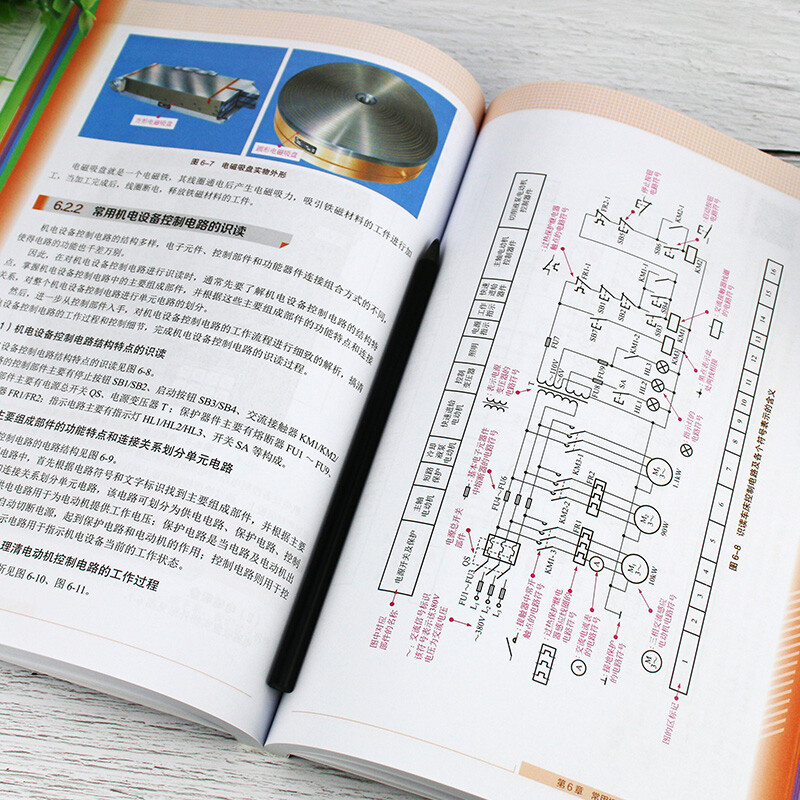 方形电磁吸盘
圆形电磁吸盘
图 6-7 电磁吸盘实物外形
电磁吸盘就是一个电磁铁，其线圈通电后产生电磁吸力，吸引铁磁材料的工件进行加
工，当加工完成后，线圈断电，释放铁磁材料的工件。
6.2.2 常用机电设备控制电路的识读
机电设备控制电路的结构多样，电子元件、控制部件和功能器件连接组合方式的不同，
使得电路的功能也千差万别。
因此，在对机电设备控制电路进行识读时，通常先要了解机电设备控制电路的结构特
点，掌握机电设备控制电路中的主要组成部件，并根据这些主要组成部件的功能特点和连接
关系，对整个机电设备控制电路进行单元电路的划分。
然后，进一步从控制部件入手，对机电设备控制电路的工作流程进行细致的解析，搞清
设备控制电路的工作过程和控制细节，完成机电设备控制电路的识读过程。
1）机电设备控制电路结构特点的识读
设备控制电路结构特点的识读见图 6-8。
的控制部件主要有停止按钮 SB1/SB2、启动按钮 SB3/SB4、交流接触器 KM1/KM2/
部件主要有电源总开关 QS、电源变压器 T；保护器件主要有熔断器 FU1～FU9、
器 FR1/FR2；指示电路主要有指示灯 HL1/HL2/HL3、开关 SA 等构成。
主要组成部件的功能特点和连接关系划分单元电路
控制电路的电路结构见图 6-9。
电路中，首先根据电路符号和文字标识找到主要组成部件，并根据主要
和连接关系划分单元电路，该电路可划分为供电电路、保护电路、控制
供电电路用于为电动机提供工作电压；保护电路是当电路及电动机出
自动切断电源，起到保护电路和电动机的作用；控制电路则用于控
示电路用于指示机电设备当前的工作状态。
理清电动机控制电路的工作过程
析见图 6-10、图 6-11。
图中对应
部件的名称
电源开关及保护
主轴
电动机
短路
保护
冷却
液泵
电动机
快速进给
电动机
控制
变压器
照明
电源
指示
工作
指示
快速
进给
器件
主轴电动机
控制器件
切削液泵电动机
控制器件
～：交流信号标识
该符号表示该380V
电压为交流电压
电源总开关
部件
：基本电子元器件
中熔断器的电路符号
：表示电源
变压器的
电路符号
：过热保护继电器
触点的电路符号
：停止按钮
电路符号
：启动按钮
电路符号
：交流接触器线圈
的电路符号
：黑点表示此
处两线相接
：指示灯的
电路符号
～380V
L1
L2
L3
FU1～FU3
QS
FU4～FU6
T
~110V
FU7
FU8
FU9
SA
HL1
HL2
HL3
KM1
FR1-1
FR2-1
SB1
SB2
SB3
SB4
SB5
SB6
KM1-1
KM2-1
KM1-3
KM2-2
KM3-1
FR1
FR2
A
M1
3~
10kW
M2
3~
90W
M3
3~
1.1kW
：接触器中常开
触点的电路符号
：过热保护继电
器感应线圈的
电路符号
：交流电流表
的电路符号
：接地保护
的电路符号
：三相交流感应
电动机电路符号
图的区标记
1
2
3
4
5
6
7
8
9
10
11
12
13
14
15
16
图 6-8 识读车床控制电路及各个符号表示的含义
第 6 章 常用